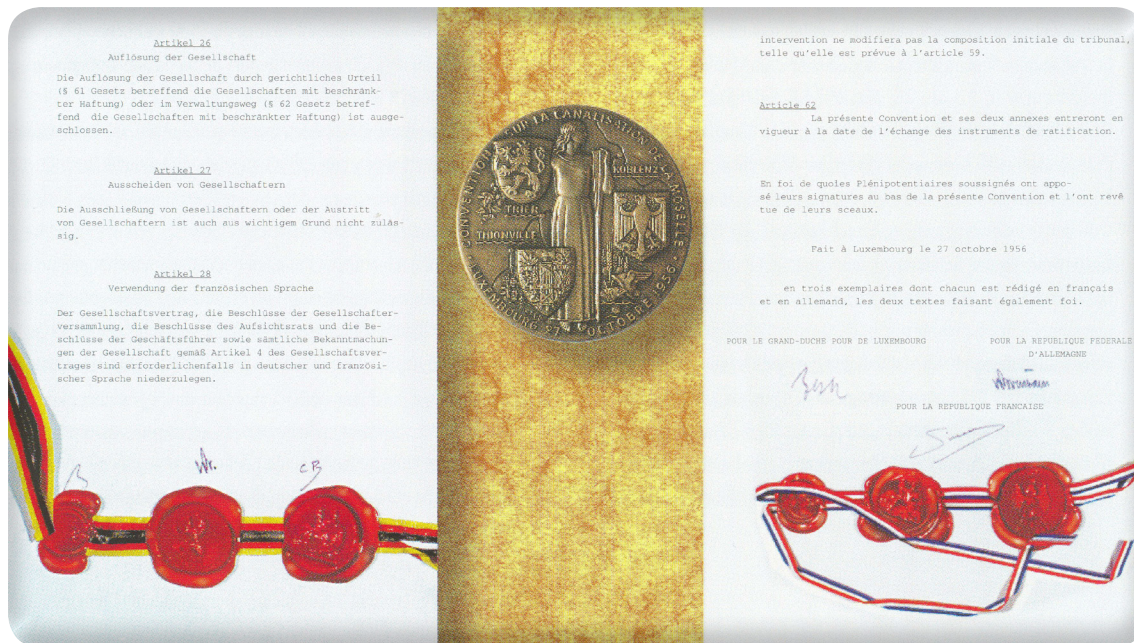 Artikel 26
Auflösung der Gesellschaft
Die Auflösung der Gesellschaft durch gerichtliches Urteil
(§ 61 Gesetz betreffend die Gesellschaften mit beschränk-
ter Haftung) oder im Verwaltungsweg (§ 62 Gesetz betref-
fend die Gesellschaften mit beschränkter Haftung) ist ausge-
schlossen.
Artikel 27
Ausscheiden von Gesellschaftern
Die Ausschließung von Gesellschaftern oder der Austritt
von Gesellschaftern ist auch aus wichtigem Grund nicht zuläs-
sig.
Artikel 28
Verwendung der französischen Sprache
Der Gesellschaftsvertrag, die Beschlüsse der Gesellschafter-
versammlung, die Beschlüsse des Aufsichtsrats und die Be-
schlüsse der Geschäftsführer sowie sämtliche Bekanntmachun-
gen der Gesellschaft gemäß Artikel 4 des Gesellschaftsver-
trages sind erforderlichenfalls in deutscher und französi-
scher Sprache niederzulegen.
B
Wr.
CB
CONVENTION SUR LA CANALISATION DE LA MOSELLE
KOBLENZ
TRIER
THIONVILLE
LUXEMBOURG 27 OCTOBRE 1956
intervention ne modifiera pas la composition initiale du tribunal,
telle qu'elle est prévue à l'article 59.
Article 62
La présente Convention et ses deux annexes entreront en
vigueur à la date de l'échange des instruments de ratification.
En foi de quoles Plénipotentiaires soussignés ont appo-
sé leurs signatures au bas de la présente Convention et l'ont revê
tue de leurs sceaux.
Fait à Luxembourg le 27 octobre 1956
en trois exemplaires dont chacun est rédigé en français
et en allemand, les deux textes faisant également foi.
POUR LE GRAND-DUCHE POUR DE LUXEMBOURG
POUR LA REPUBLIQUE FEDERALE
D'ALLEMAGNE
POUR LA REPUBLIQUE FRANCAISE